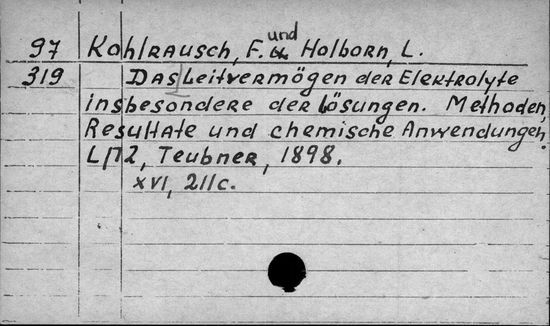 97 Kohlrausch, F. & und Holborn, L.
319 Das Leitvermögen der Elektrolyte
insbesondere der Lösungen. Methoden,
Resultate und chemische Anwendungen.
Teubner, 1898.
XVI, 211c.